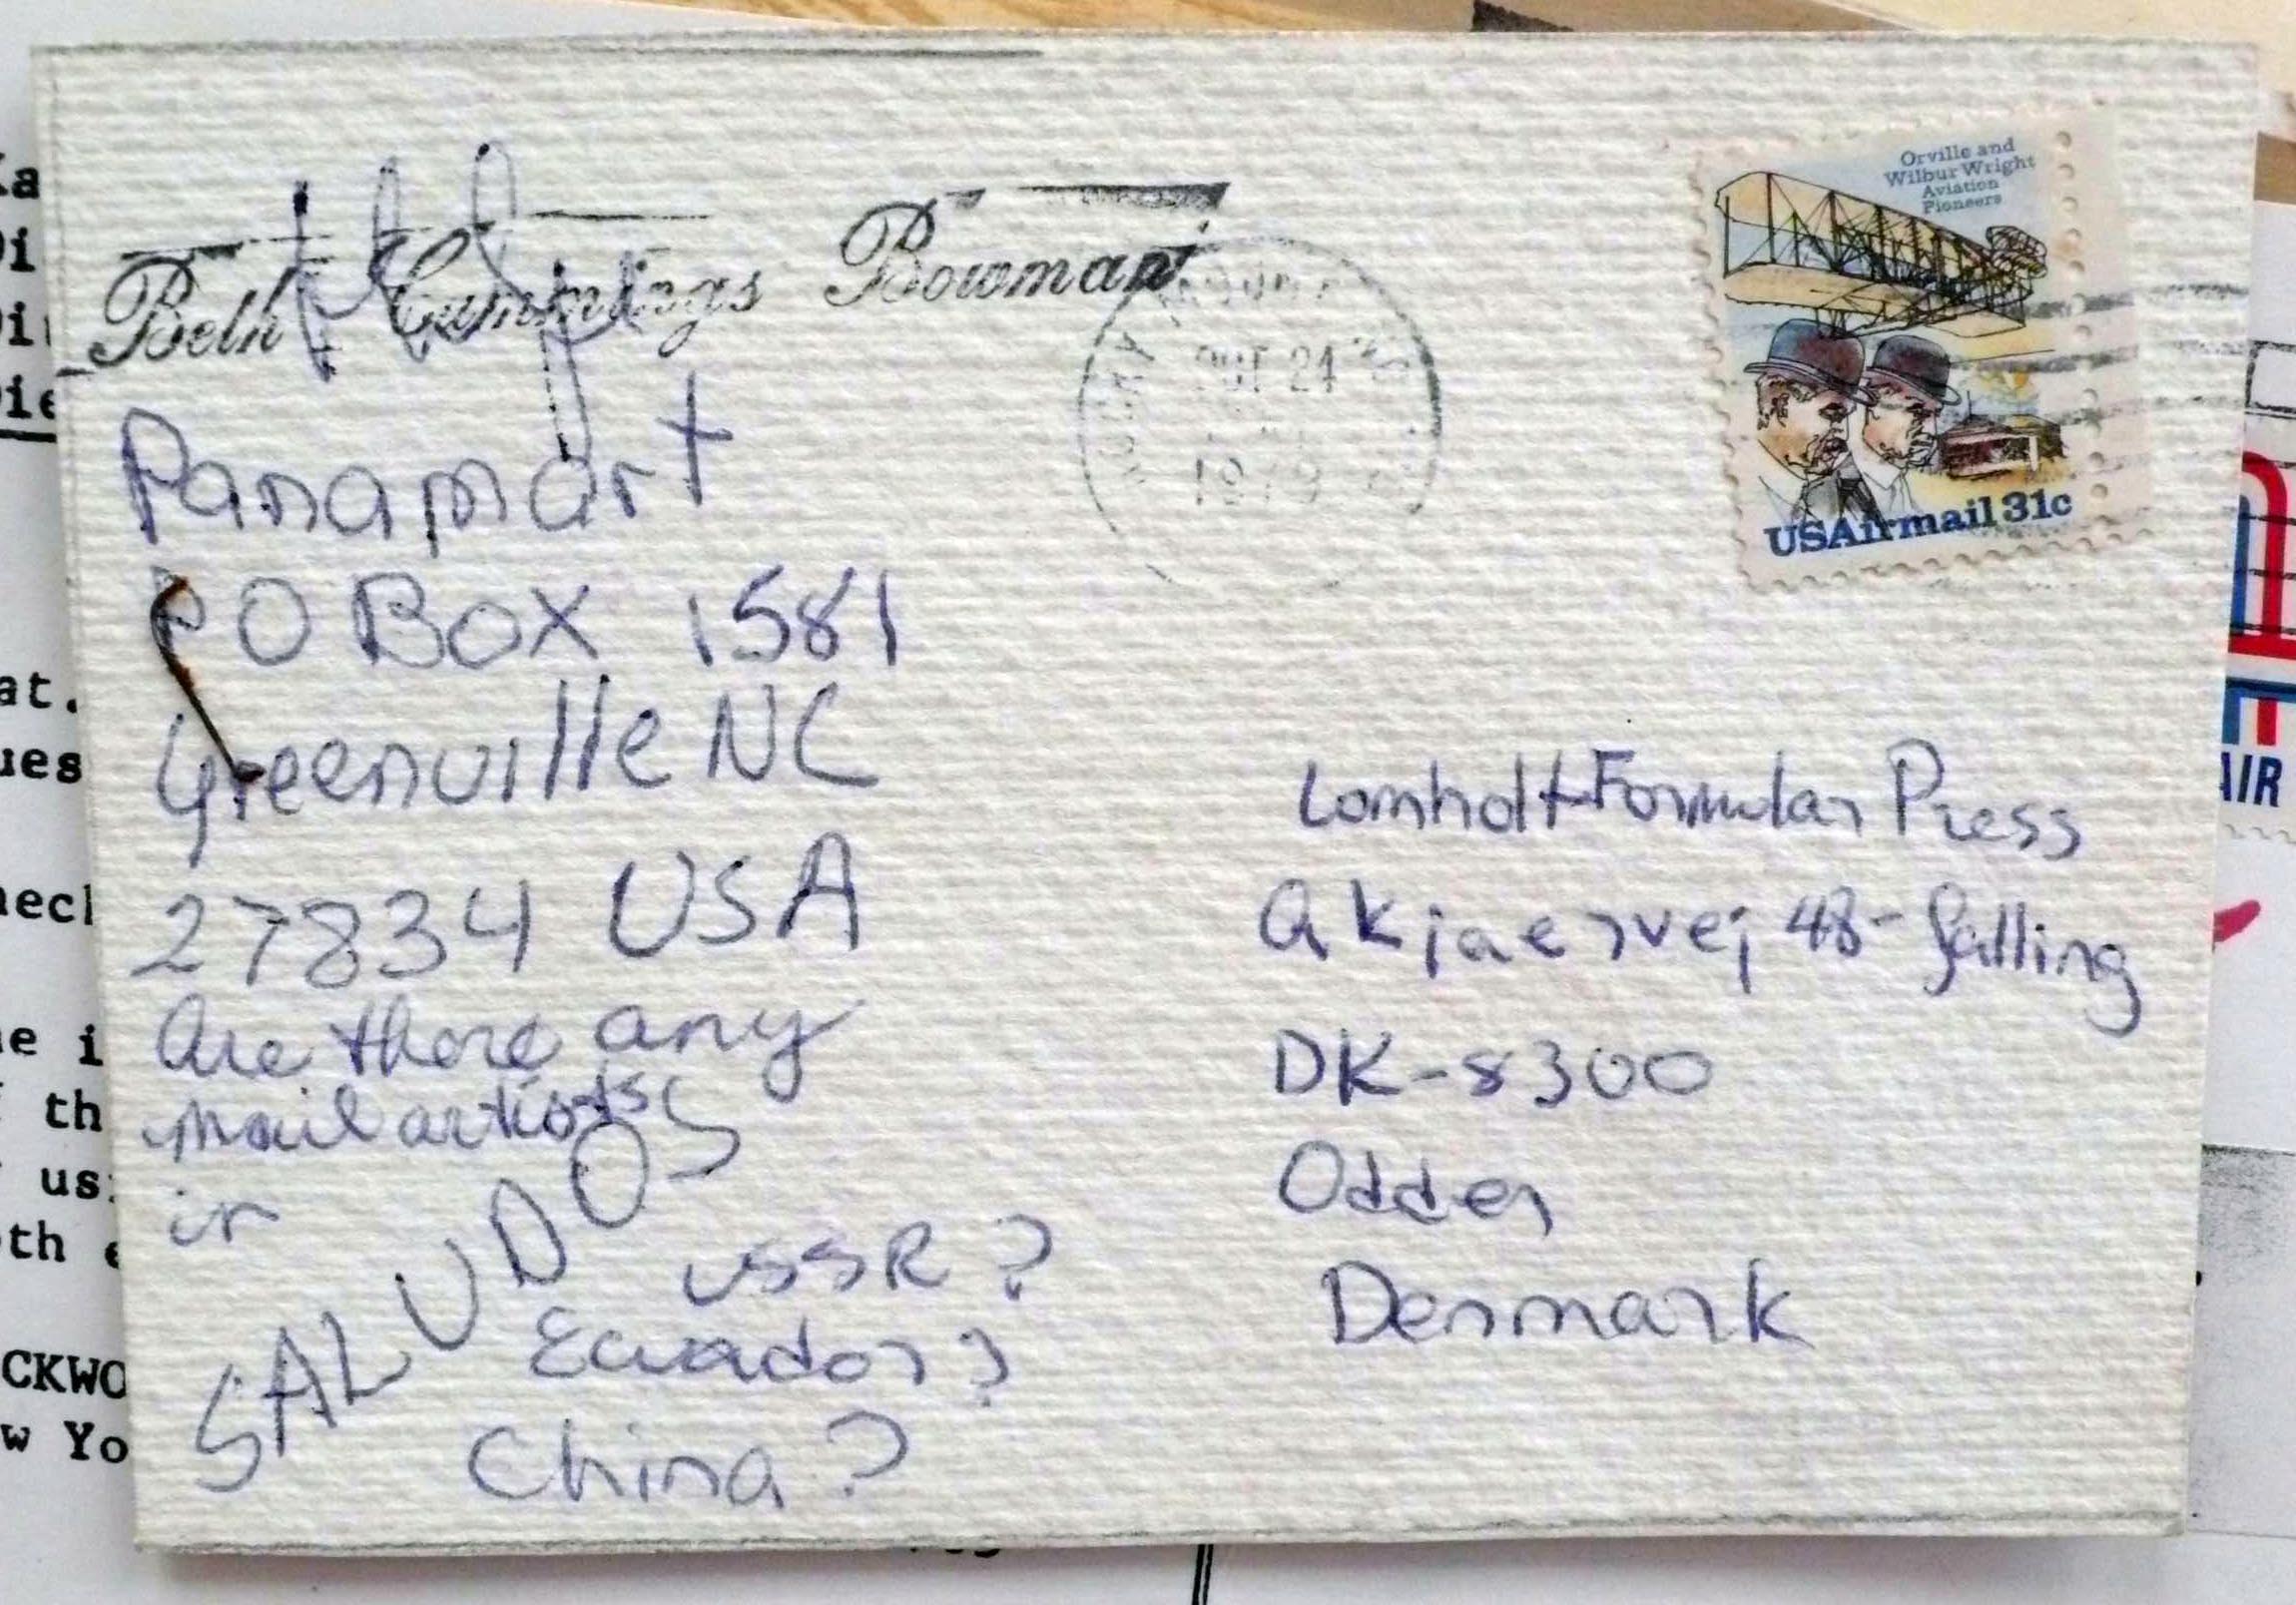 Beth Cummings Bowman
Panamart
PO Box 1581
Greenville NC
27834 USA
Are there any
mail artists
in
SALUDOS
USSR?
Ecuador?
China?
OCT 24
1979
Orville and
Wilbur Wright
Aviation
Pioneers
USAirmail 31c
Lomholt Formular Press
Akjaervej 48 - falling
DK-8300
Odder
Denmark
at.
th
CKWO
w Yo
AIR